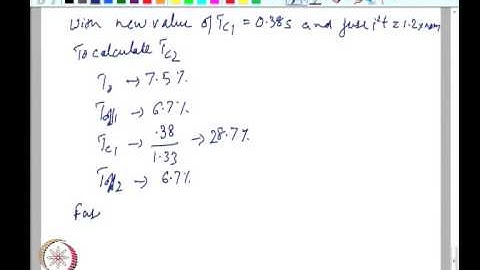 With new value of Tc1 = 0.38s and fuse i²t = 1.2xnom
To calculate Tc2
7.5%
Toff1 → 6.7%
Tc1 → .38/1.33 → 28.7%
Toff2 → 6.7%
fas